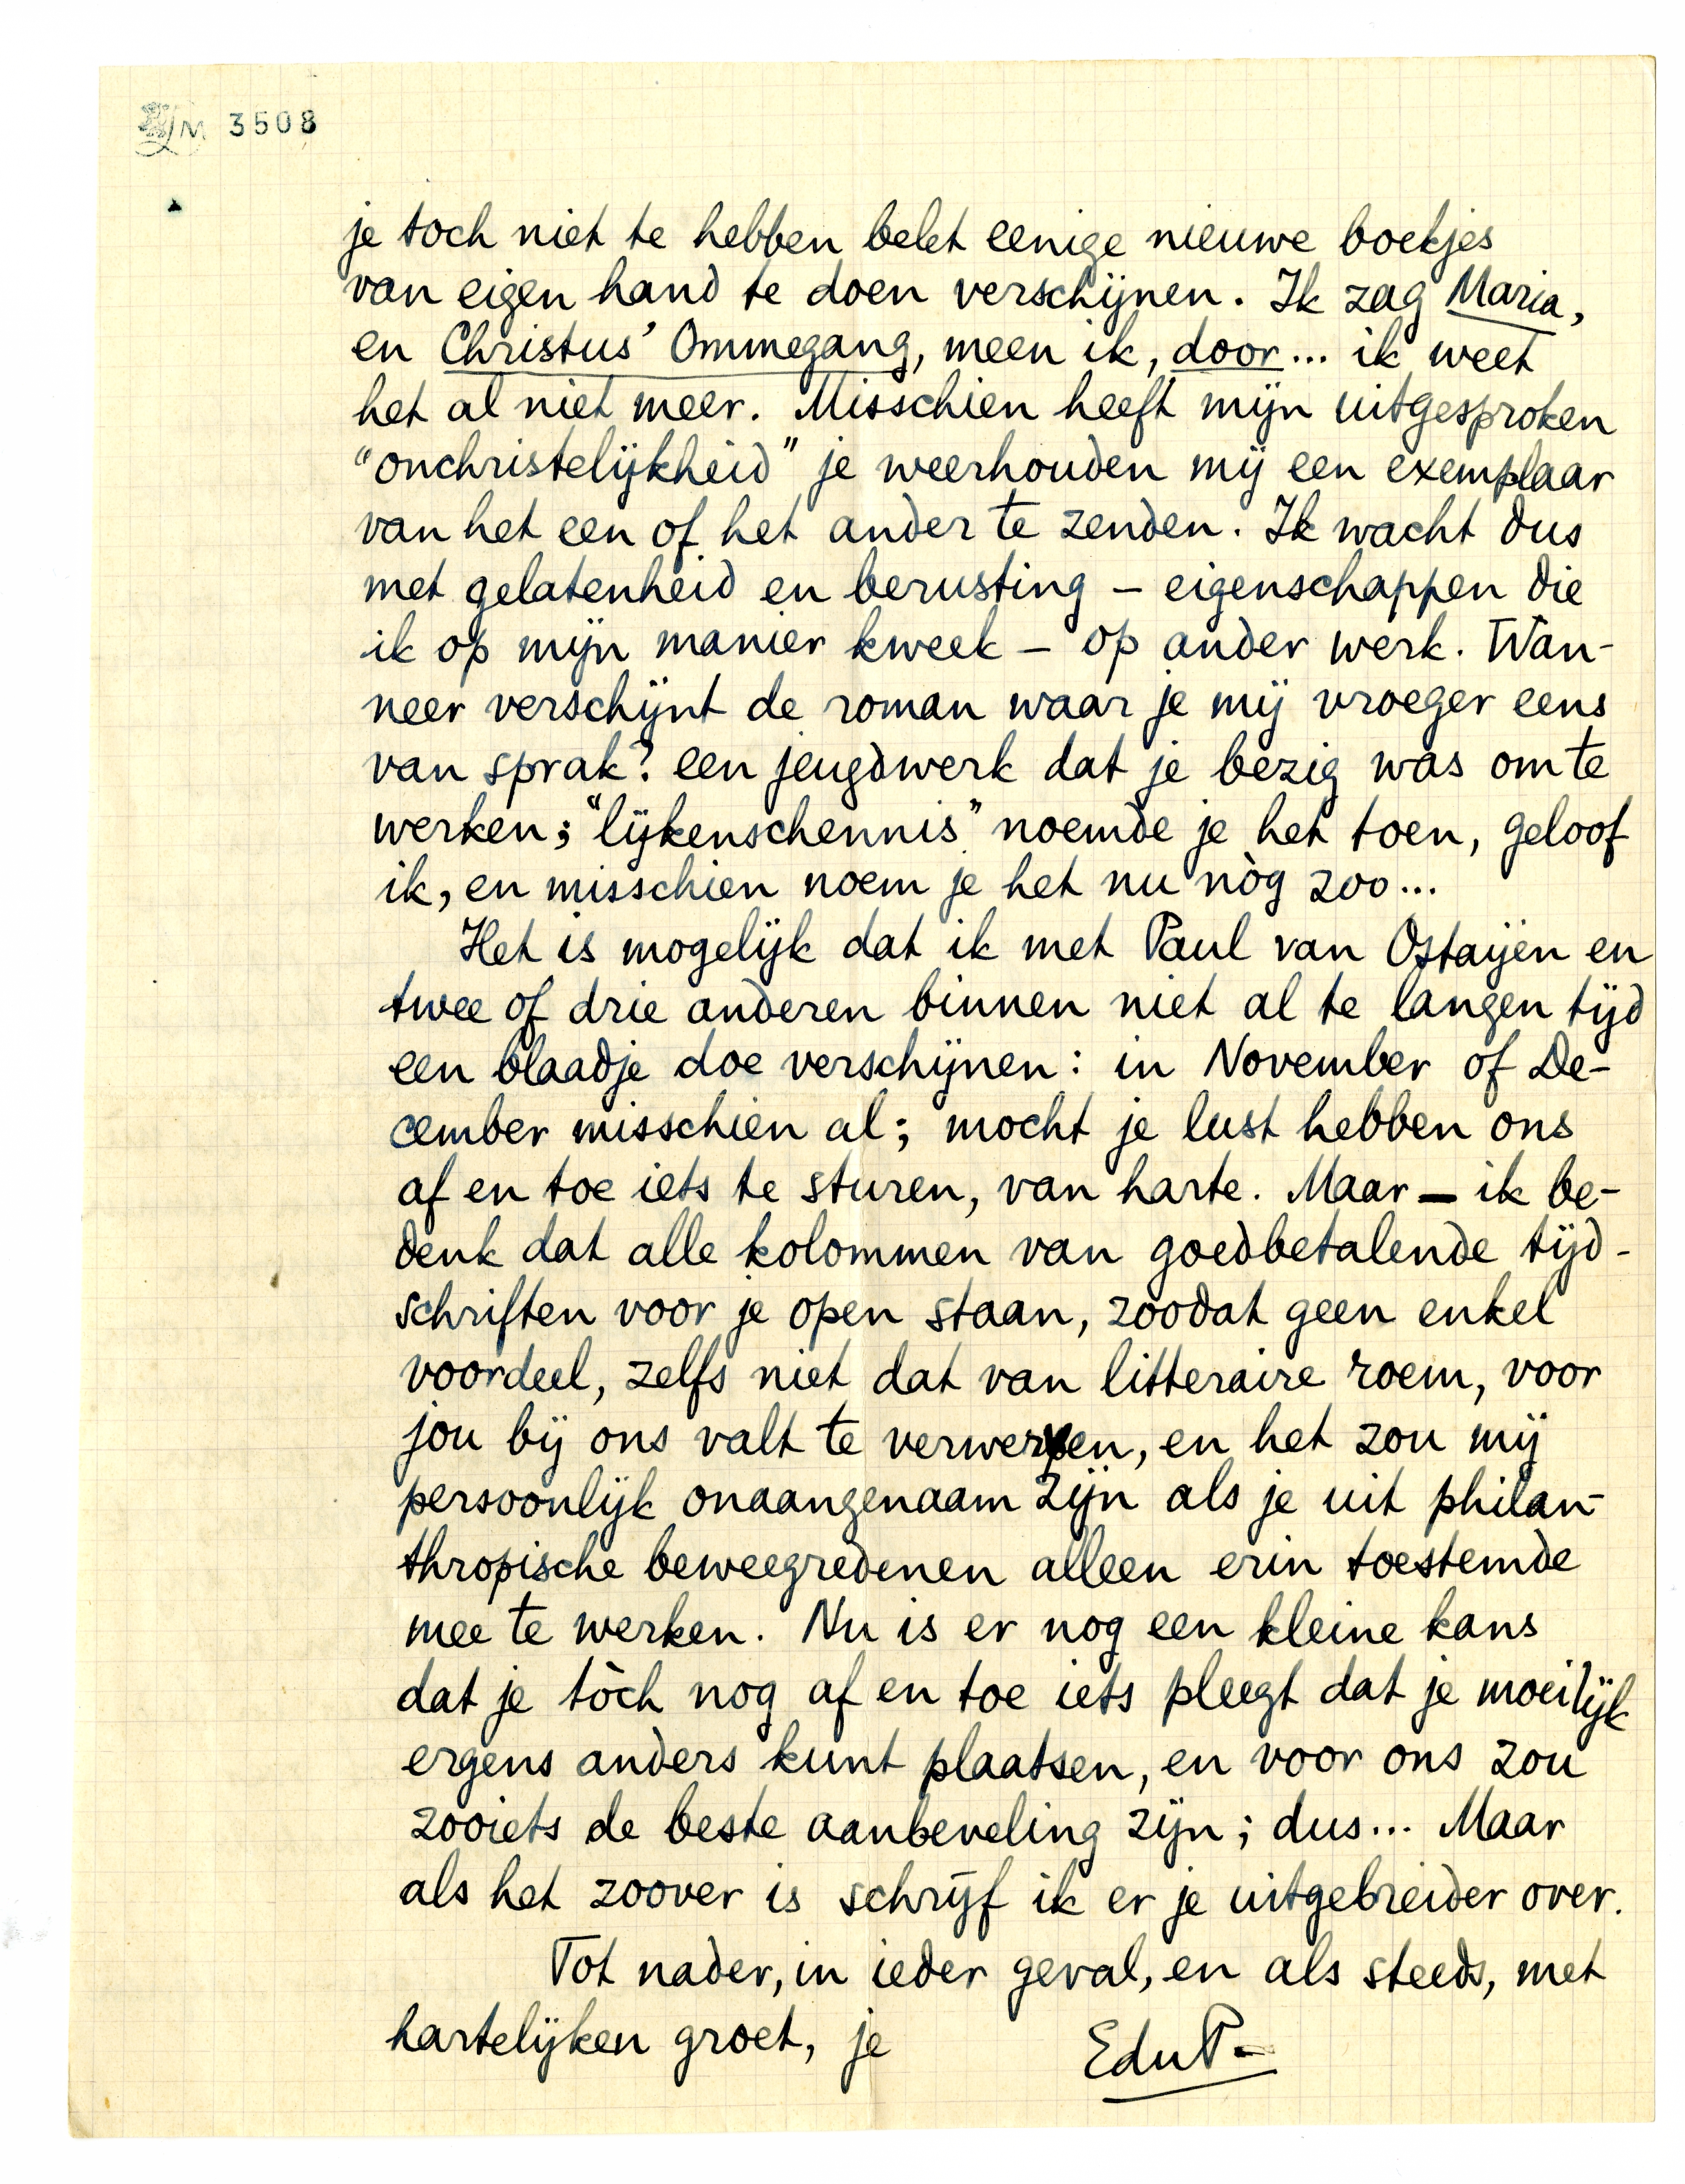 3508
je toch niet te hebben belet eenige nieuwe boekjes
van eigen hand te doen verschijnen. Ik zag Maria,
en Christus' Ommegang, meen ik, door... ik weet
het al niet meer. Misschien heeft mijn uitgesproken
"onchristelijkheid" je weerhouden mij een exemplaar
van het een of het ander te zenden. Ik wacht dus
met gelatenheid en berusting – eigenschappen die
ik op mijn manier kweek – op ander werk. Wan-
neer verschijnt de roman waar je mij vroeger eens
van sprak? een jeugdwerk dat je bezig was om te
werken; "lijkenschennis" noemde je het toen, geloof
ik, en misschien noem je het nu nòg zoo...
Het is mogelijk dat ik met Paul van Ostaijen en
twee of drie anderen binnen niet al te langen tijd
een blaadje doe verschijnen: in November of De-
cember misschien al; mocht je lust hebben ons
af en toe iets te sturen, van harte. Maar – ik be-
denk dat alle kolommen van goedbetalende tijd-
schriften voor je open staan, zoodat geen enkel
voordeel, zelfs niet dat van litteraire roem, voor
jou bij ons valt te verwerven, en het zou mij
persoonlijk onaangenaam zijn als je uit philan-
thropische beweegredenen alleen erin toestemde
mee te werken. Nu is er nog een kleine kans
dat je tòch nog af en toe iets pleegt dat je moeilijk
ergens anders kunt plaatsen, en voor ons zou
zooiets de beste aanbeveling zijn; dus... Maar
als het zoover is schrijf ik er je uitgebreider over.
Tot nader, in ieder geval, en als steeds, met
hartelijken groet, je EduP-